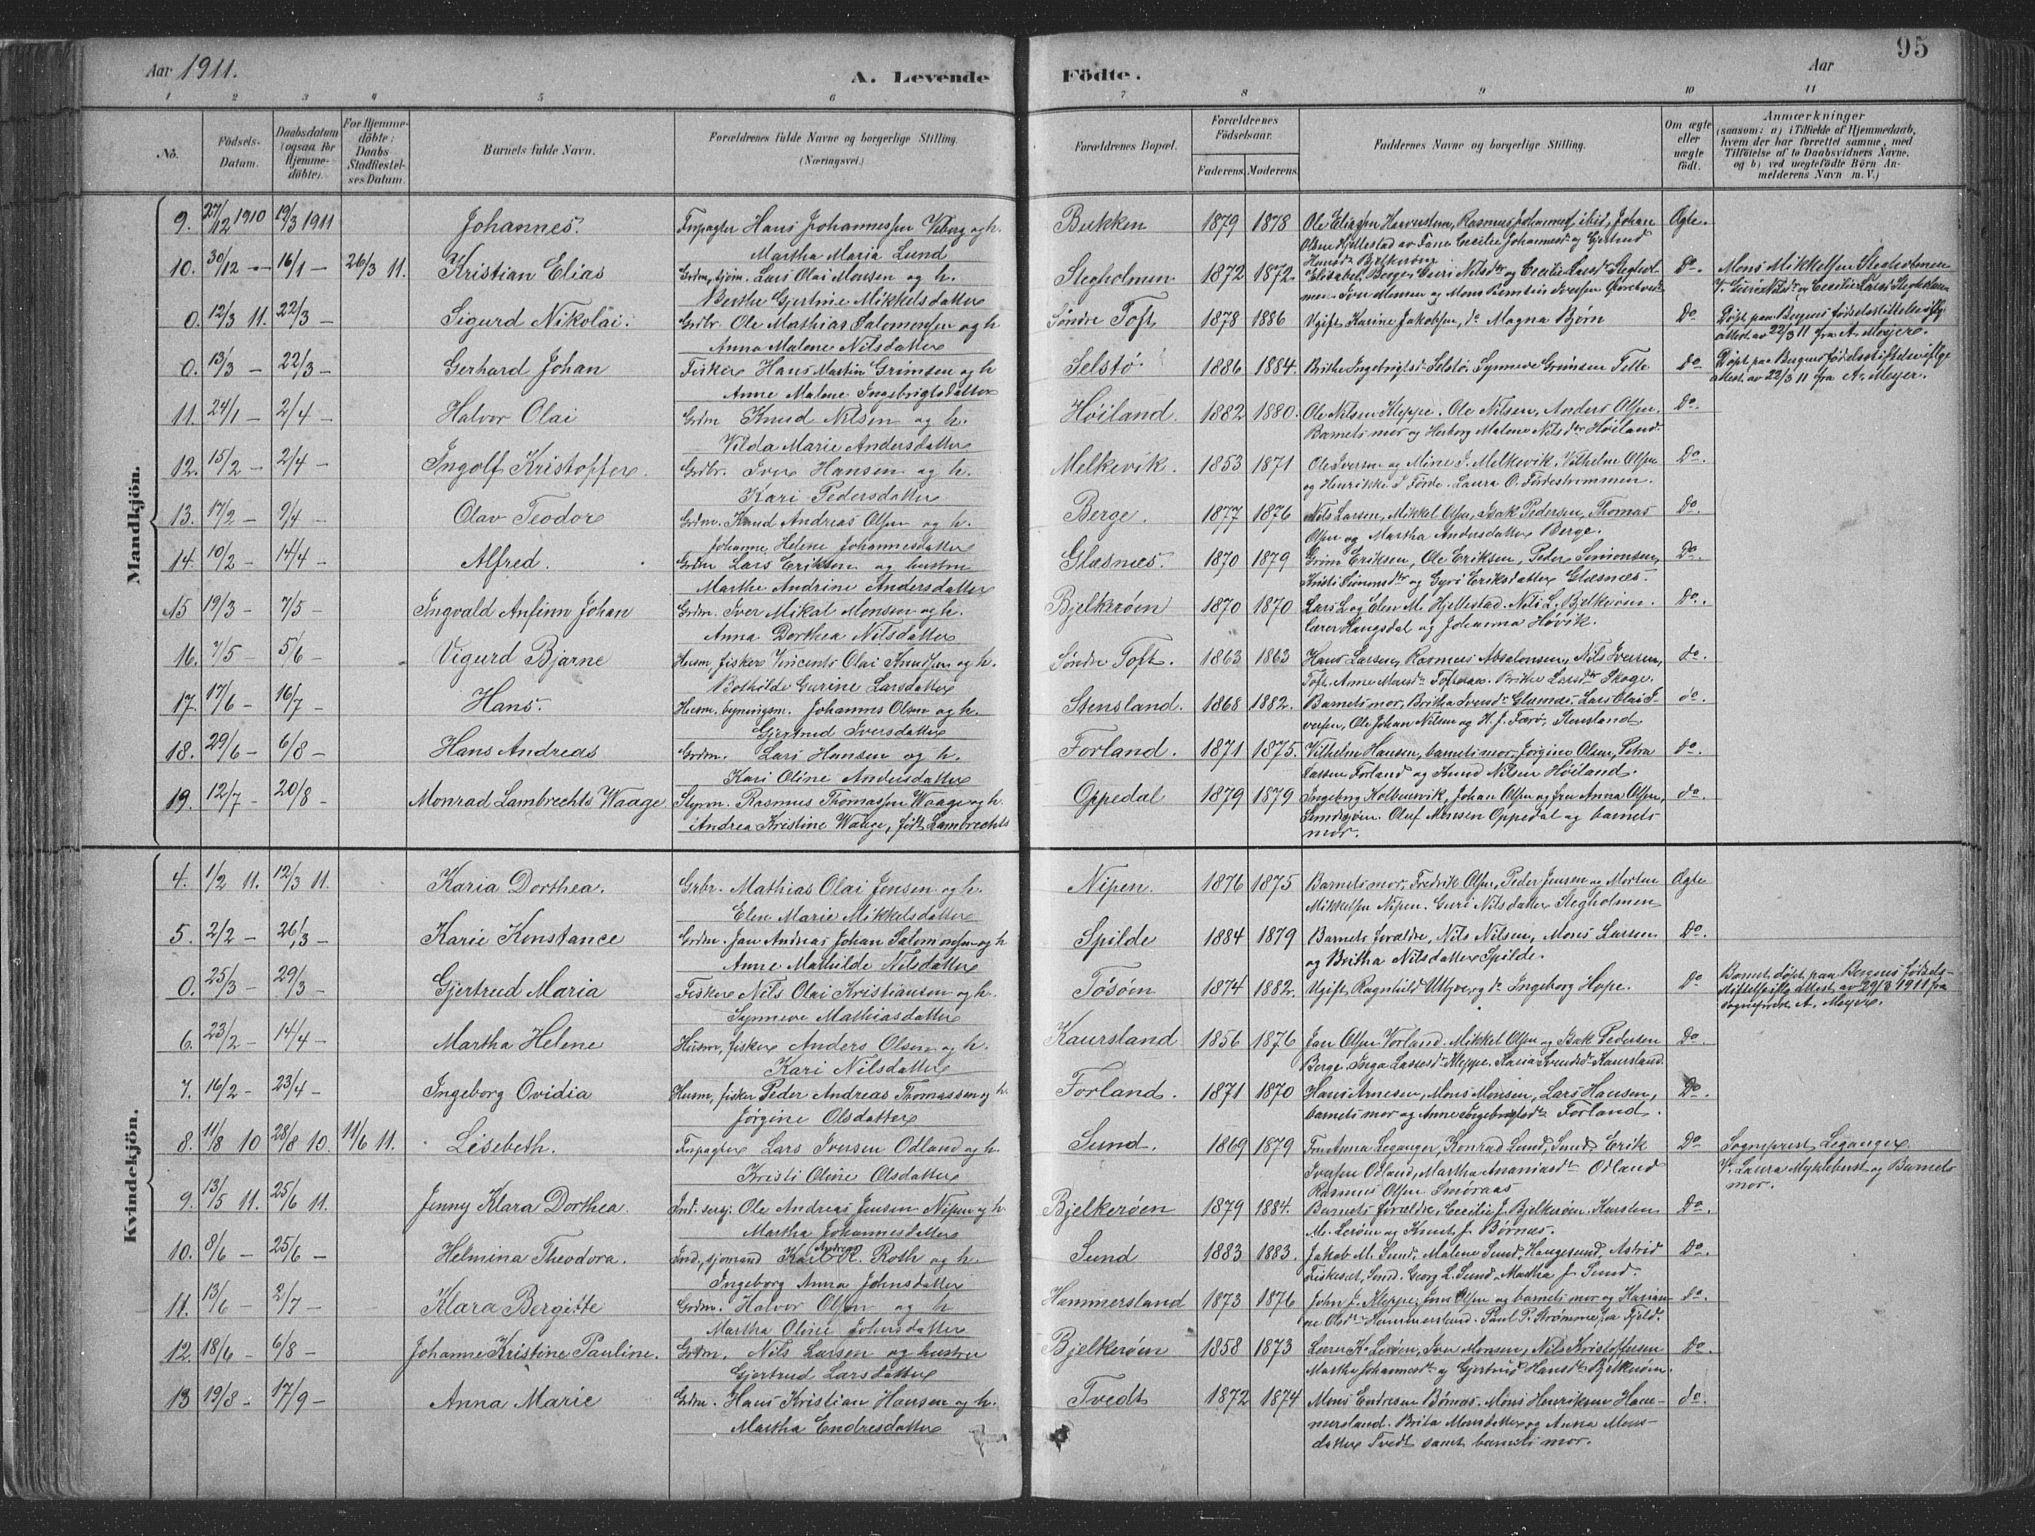 Aar 1911.
A. Levende
Födte.
Aar
95
1 2 3 4 5 6 7 8 9 10 11
No.
Födsels-Datum.
Daabsdatum (ogsaa for Hjemmedöbte).
For Hjemmedöbte: Daabs Stadfæstelses Datum.
Barnets fulde Navn.
Forældrenes fulde Navne og borgerlige Stilling. (Næringsvei.)
Forældrenes Bopæl.
Forældrenes Födselsaar.
Faderens. Moderens.
Faddernes Navne og borgerlige Stilling.
Om ægte eller uægte födt.
Anmærkninger (saasom: a) i Tilfælde af Hjemmedaab, hvem der har forrettet samme, med Tilföielse af to Daabsvidners Navne, og b) ved uægtefödte Börn Anmelderens Navn m. V.)
Mandkjön.
9. 27/12 1910 19/3 1911 Johannes. Frpagter Hans Johannessen Viborg og h. Bukken 1879 1878 Ægte
Martha Maria Lund
10. 30/12 - 16/1 - 26/3 11. Kristian Elias Lars Olai Monsen og h. Stegholmen 1872 1872 Do Mons Mikkelsen Stegholmen
Berthe Gjertine Mikkelsdatter
0. 12/3 11. 22/3 - Sigurd Nikolai. Grdbr. Ole Mathias Salomonsen og h Søndre Toft 1878 1886 Ugift Karine Jakobsen, do Magna Bjørn Do Døpt paa Bergens fødselsstiftelse iflg.
Anna Malene Nilsdatter attest av 22/3 11 fra A. Meyer.
0. 13/3 - 22/3 - Gerhard Johan Fisker Hans Martin Grimsen og h Selstø 1886 1884. Brithe Ingebrigtsd. Selstø. Synneve Grimsen Telle Do Døpt paa Bergens fødselsstiftelse iflge
Anne Malene Ingebrigtsdatter attest. av 22/3 11 fra A. Meyer.
11. 24/1 - 2/4 - Halvor Olai Grdm Knud Nilsen og h. Høiland. 1882 1880. Ole Nilsen Kleppe. Ole Nilsen, Anders Olsen. Do.
Vilda Marie Andersdatter Barnets mor og Herborg Malene Nilsdtr Høiland.
12. 15/2 - 2/4 - Ingolf Kristoffer. Grdbr. Iver Hansen og h. Melkevik. 1853 1871 Ole Iversen og Mine I. Melkevik. Vilhelm Olsen Do.
Kari Pedersdatter og Henrikke I Førde. Laura O. Førdestrømmen.
13. 17/2 - 9/4 - Olav Teodor Grdm. Knud Andreas Olsen og h. Berge. 1877 1876 Nils Larsen, Mikkel Olsen, Isak Pedersen, Thomas Do.
Johanne Helene Johannesdatter Olsen og Martha Andersdatter Berge.
14. 10/2 - 14/4 - Alfred. Grdm Lars Eriksen og hustru Glæsnes. 1870 1879 Grim Eriksen, Ole Eriksen, Peder Simonsen, Do.
Marthe Andrine Andersdatter og Gyri Eriksdatter Glæsnes.
15 19/3 - 7/5 - Ingvald Anfinn Johan Grdm. Iver Mikal Monsen og h. Bjelkerøen 1870 1870 Lars L. og Elen M. Hjellestad. Nils L. Bjelkerøen. Do.
Anna Dorthea Nilsdatter Lærer Haugsdal og Johanna Høvik.
16. 7/5 - 5/6 - Vigurd Bjarne Husm, fisker Vincents Olai Knudsen og h. Søndre Toft. 1863 1863 Hans Larsen, Rasmus Absalonsen, Nils Iversen, do.
Bothilde Gurine Larsdatter
17. 17/6 - 16/7 - Hans. Husm. bygningsm. Johannes Olsen og h. Stensland. 1868 1882. do.
Gjertrud Iversdatter Ole Johan Nilsen og H. J. Færø, Stensland.
18. 29/6 - 6/8 - Hans Andreas Grdm. Lars Hansen og h. Forland. 1871 1875. Vilhelm Hansen, barnets mor, Jørgine Olsen, Petra do.
Kari Oline Andersdatter Larsen Forland og Knud Nilsen Høiland.
19. 12/7 - 20/8 - Monrad Lambrechts Waage Styrm. Rasmus Thomassen Waage og h. Oppedal 1879 1879 Johan Olsen og fru Anna Olsen, do.
Andrea Kristine Waage, født Lambrechts Olaf Monsen Oppedal og barnets
mor.
Kvindekjön.
4. 1/2 11. 12/3 11. Karia Dorthea. Grbr. Mathias Olai Jensen og h. Nipen. 1876 1875 Barnets mor, Fredrik Olsen, Peder Jensen og Morten Ægte
Elen Marie Mikkelsdatter Mikkelsen Nipen. Guri Nilsdatter Stegholmen
5. 2/2 - 26/3 - Karie Konstance Grdm. Jan Andreas Johan Salomonsen og h Spilde 1884 1879 Barnets foreldre, Nils Nilsen, Mons Larsen Do.
Anne Mathilde Nilsdatter og Britha Nilsdatter Spilde.
0. 25/3 - 29/3 - Gjertrud Maria Fisker Nils Olai Kristiansen og h. Tøsøen 1874 1882. Ugift Ragnhild Utgve, og do Ingeborg Hope. Do Barnet døpt paa Bergens fødsels-
Synneve Mathiasdatter stiftelse iflg. attest av 29/3 1911 fra
A. Meyer.
6. 23/2 - 14/4 - Martha Helene Husm, fisker Anders Olsen og h. Kaursland 1856 1876 Jan Olsen Vorland. Mikkel Olsen og Isak Pedersen Do
Kari Nilsdatter
7. 16/2 - 23/4 - Ingeborg Ovidia Husm, fisker Peder Andreas Thomassen og h. Forland. 1871 1870 Hans Arnesen, Mons Monsen, Lars Hansen, Do.
Jørgine Olsdatter barnets mor og Anne Ingebrigtsdtr Forland.
8. 11/8 10 28/8 10. 11/6 11. Lisebeth. Frpagter Lars Iversen Odland og h. Sund. 1869 1879 Fru Anna Leganger, Konrad Lund, Sund, Erik Do Sogneprest Leganger
Kristi Oline Olsdatter Iversen Odland, Martha Ananiasdtr Odland Laura Myklehust og Barnets
Rasmus Olsen Smøraas mor.
9. 13/5 11. 25/6 11. Jenny Klara Dorthea. Ind. serg. Ole Andreas Jensen Nipen og h. Bjelkerøen 1879 1884. Barnets forældre, Cecilie J. Bjelkerøen. Karsten Do.
Martha Johannesdatter M. Lerøen og Knut J. Børnes.
10. 8/6 - 25/6 - Helmina Theodora. Ind., sjømand Karl Andreas R. Roth og h. Sund 1883 1883. Jakob M. Sund, Malene Sund, Haugesund. Astrid Do.
Ingeborg Anna Johnsdatter Fiskeset, Sund. Georg L. Sund. Martha J. Sund.
11. 13/6 - 2/7 - Klara Bergitte Grdm. Halvor Olsen og h Hammersland 1873 1876 John J. Kleppe, Jens Olsen og barnets mor og do.
Martha Oline Johnsdatter Hammersland. Paul P. Strømme,
12. 18/6 - 6/8 - Johanne Kristine Pauline. Grdm. Nils Larsen og hustru Bjelkerøen 1858 1873 Lerøen, Iver Monsen, Nils Kristoffersen Do.
Gjertrud Larsdatter Martha Johannesdtr og Gjertrud Hansdtr Bjelkerøen.
13 19/8 - 17/9 - Anna Marie Grdm. Hans Kristian Hansen og h. Tvedt 1872 1874 Mons Endresen Børnes. Mons Henriksen Ham- do.
Martha Endresdatter mersland. Brita Monsdatter og Anna Mons-
datter Tvedt samt barnets mor.